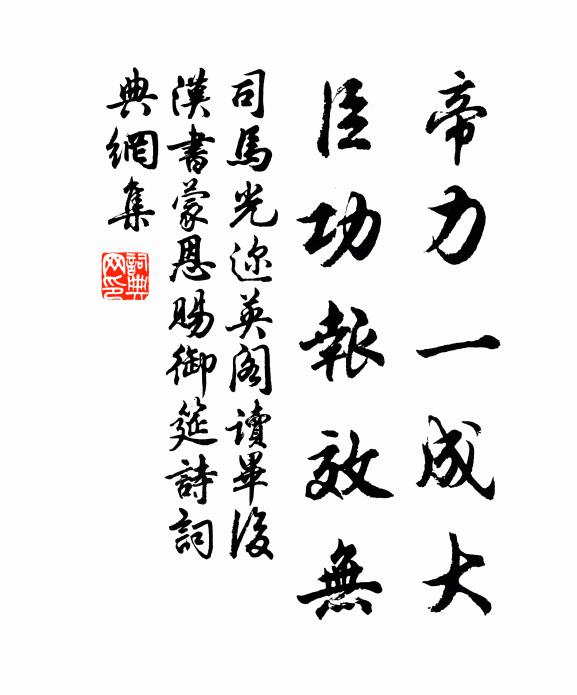 帝力一成大
臣功報效無
司馬光邇英閣讀畢後
漢書蒙恩賜御筵詩詞
典網集
詞典
网印